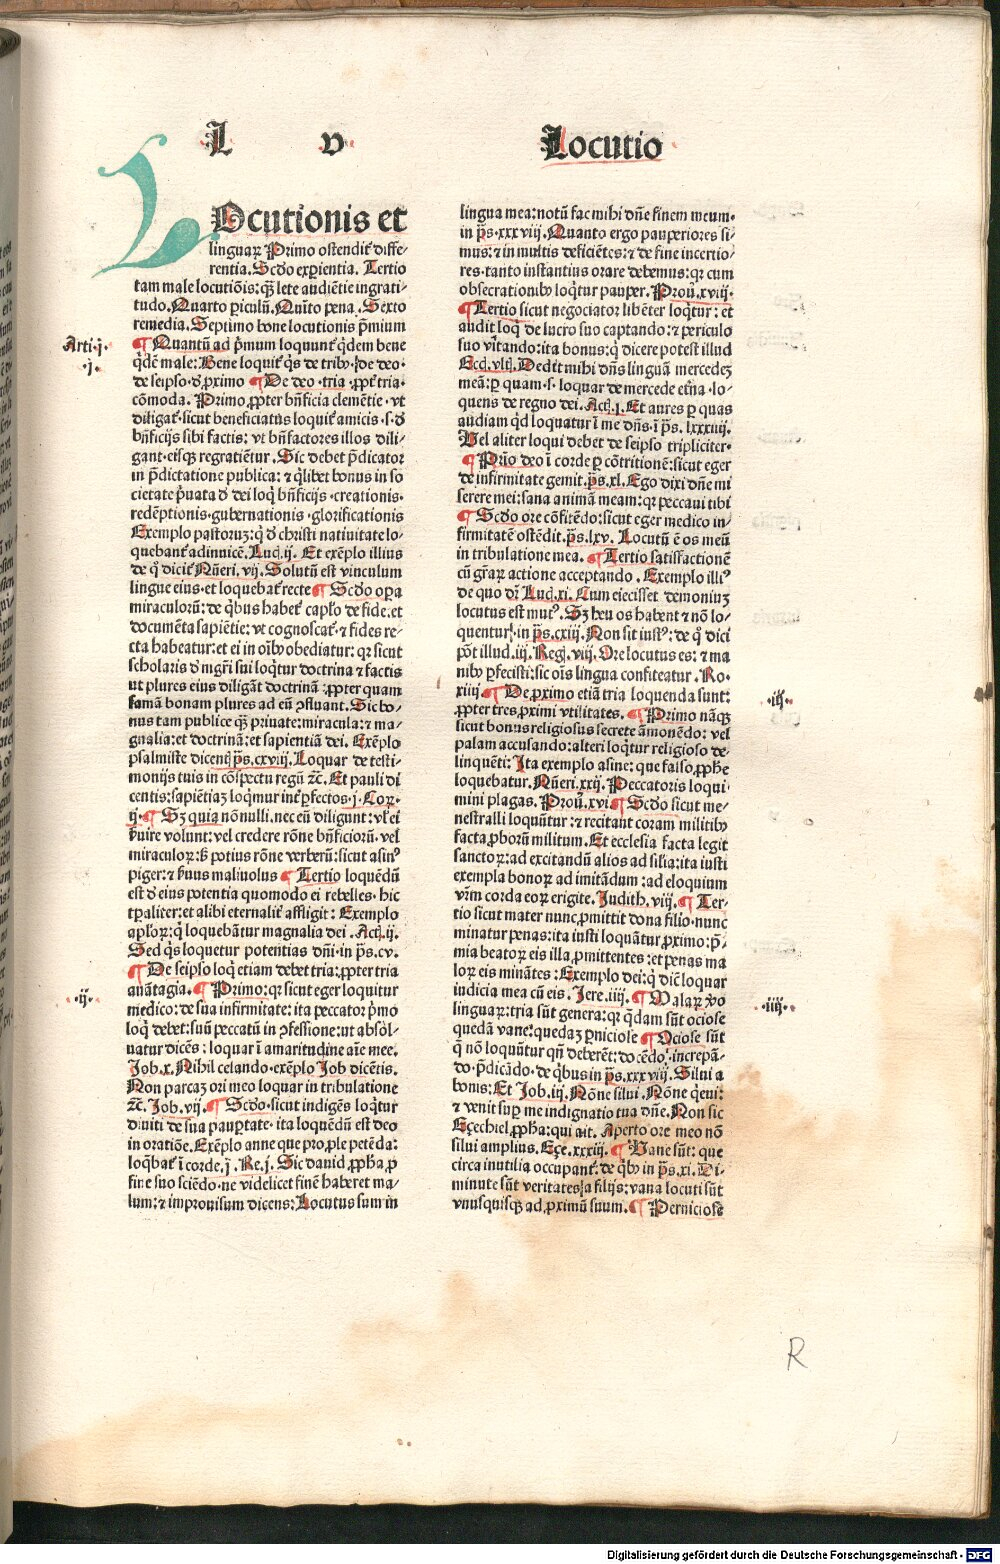 L v Locutio
LOcutionis et
linguaꝝ Primo ostendit᷑ diffe-
rentia. Scďo experientia. Tertio
tam male locutiōis: q̄ȝ lete audiētie ingrati-
tudo. Quarto piculū. Quīto pena. Sexto
remedia. Septimo bone locutionis p̄mium
Arti.j.
¶ Quantū ad p̄mum loquunt᷑ q̇dem bene
.j.
q̇dē male: Bene loquit᷑ q̇s de tribꝰ. ſ. de deo.
de seipso. ⁊ ꝓximo ¶ De deo. tria. ꝓpt᷑ tria.
cōmoda. Primo, ꝓpter bn̄ficia clemētie. vt
diligat᷑. sicut beneficiatus loquit᷑ amicis. s. ď
bn̄ficijs sibi factis: vt bn̄factores illos dili-
gant. eisqꝫ regratiētur. Sic debet p̄dicator
in p̄dictatione publica: ⁊ q̇libet bonus in so
cietate p̄uata ď dei loq̇ bn̄ficijs. creationis.
redēptionis. gubernationis. glorificationis
Exemplo pastoruꝫ: q̇ ď christi natiuitate lo-
quebant᷑ adinuicē. Luc̄. ij. Et exēplo illius
de q̊ dicit᷑ Nūeri. vij. Solutū est vinculum
lingue eius. et loquebat᷑ recte ¶ Scďo oꝑa
miraculorū: de q̇bus habet᷑ caplo de fide. et
documēta sapiētie: vt cognoscat᷑. ⁊ fides re-
cta habeatur: et ei in oībꝰ obediatur: qꝛ sicut
scholaris ď mgr̄i sui loq̇tur doctrina ⁊ factis
ut plures eius diligāt doctrinā: ꝓpter quam
famā bonam plures ad eū ꝯfluant. Sic bo-
nus tam publice q̄ȝ priuate: miracula: ⁊ ma-
gnalia: et doctrinā: et sapientiā dei. Exēplo
psalmiste dicent᷑ p̄s. cxviij. Loquar de testi-
monijs tuis in cōspectu regū ⁊c̄. Et pauli di
centis: sapiētiaꝫ loq̇mur int᷑ ꝑfectos. j. Coꝝ.
ij. ¶ Sꝫ quia nōnulli. nec eū diligunt: vl̓ ei
ẜuire volunt: vel credere rōne bn̄ficiorū. vel
miraculoꝝ: ẜ potius rōne verberū: sicut asinꝰ
piger: ⁊ ẜuus maliuolus ¶ Tertio loquēdū
est ď eius potentia quomodo ei rebelles. hic
tꝑaliter: et alibi eternalit᷑ affligit: Exemplo
apl̓oꝝ: q̇ loquebātur magnalia dei. Act̄. ij.
Sed q̇s loquetur potentias dn̄i. in p̄s. cv.
¶ De seipso loq̇ etiam debet tria: ꝓpter tria
auātagia. ¶ Primo: qꝛ sicut eger loquitur
.ij.
medico: de sua infirmitate: ita peccator p̄mo
loq̇ debet: suū peccatū in ꝯfessione: ut absol-
uatur dicēs: loquar ī amaritudine aīe mee.
Job. x. Nihil celando. exēplo Job dicētis.
Non parcaꝫ ori meo loquar in tribulatione
⁊c̄. Job. vij. ¶ Scďo. sicut indigēs loq̇tur
diuiti de sua paupertate. ita loquēdū est deo
in oratiōe. Exēplo anne que pro, ple petēda:
loq̇bat᷑ ī corde. j. Re. j. Sic dauid ꝓpha, ꝑ
fine suo sciēdo. ne videlicet finē haberet ma-
lum: ⁊ improuisum dicens: Locutus sum in
lingua mea: notū fac mihi dn̄e finem meum.
in p̄s. xxxviij. Quanto ergo pauperiores si-
mus: ⁊ in multis deficiētes: ⁊ de fine incertio-
res. tanto instantius orare debemus: qꝛ cum
obsecrationibꝰ loq̇tur pauper. Prou̓. xviij.
¶ Tertio sicut negociator libēter loq̇tur: et
audit loq̇ de lucro suo captando: ⁊ periculo
suo vitando: ita bonus: q̇ dicere potest illud
Eccl̓. vltj̄. Dedit mihi dn̄s linguā mercedeꝫ
meā: ꝑ quam. s. loquar de mercede etn̄a. lo-
quens de regno dei. Act̄. j. Et aures ꝑ quas
audiam q̇d loquatur ī me dn̄s. ī p̄s. lxxxiiij.
Vel aliter loqui debet de seipso tripliciter.
¶ Prīo deo ī corde ꝑ cōtritionē: sicut eger
de infirmitate gemit. p̄s. xl. Ego dixi dn̄e mi
serere mei: sana animā meam: qꝛ peccaui tibi
¶ Scďo ore cōfitēdo: sicut eger medico in-
firmitatē ostēdit. p̄s. lxv. Locutū ē os meū
in tribulatione mea. ¶ Tertio satisfactionē
cū gr̄aꝝ actione acceptando. Exemplo illiꝰ
de quo dr̄ Luc̄. xi. Cum eiecisset demoniuꝫ
locutus est mutꝰ. Sꝫ heu os habent ⁊ nō lo-
quentur. in p̄s. cxiij. Non sit iustꝰ: de q̊ dici
pōt illud. iij. Reg̓. viij. Ore locutus es: ⁊ ma
nibꝰ ꝑfecisti: sic oīs lingua confiteatur. Ro.
xiiij. ¶ De, ꝓximo etiā tria loquenda sunt:
.iij.
ꝓpter tres, ꝓximi vtilitates. ¶ Primo nāqꝫ
sicut bonus religiosus secrete āmonēdo: vel
palam accusando: alteri loq̇tur religioso de-
linquēti: Ita exemplo asine: que falso, ꝓphe
loquebatur. Nūeri. xxij. Peccatoris loqui
mini plagas. Prou̓. xvi ¶ Scďo sicut me-
nestralli loquūtur: ⁊ recitant coram militibꝰ
facta, ꝓborū militum. Et ecclesia facta legit
sanctoꝝ: ad excitandū alios ad silia: ita iusti
exempla bonoꝝ ad imitādum: ad eloquium
vr̄m corda eoꝝ erigite. Judith. viij. ¶ Ter-
tio sicut mater nunc, ꝓmittit dona filio. nunc
minatur penas: ita iusti loquātur, ꝓximo: p̄-
mia beatoꝝ eis illa, ꝓmittentes: et penas ma
loꝝ eis minātes: Exemplo dei: q̇ dic̄t loquar
iudicia mea cū eis. Jere. iiij. ¶ Malaꝝ ꝟo
.iiij.
linguaꝝ: tria sūt genera: qꝛ q̇dam sūt ociose
quedā vane: quedaꝫ ꝑniciose ¶ Ociose sūt
q̄ nō loquūtur qn̄ deberēt: docēdo, increpā-
do. p̄dicādo. de q̇bus in p̄s. xxxviij. Silui a
bonis: Et Job. iij. Nōne silui. Nōne q̇eui:
⁊ venit suꝑ me indignatio tua dn̄e. Non sic
Eçechiel, ꝓpha: qui ait. Aperto ore meo nō
silui amplius. Eçe. xxxiij. ¶ Vane sūt: que
circa inutilia occupant᷑: de q̇bꝰ in p̄s. xi. Di-
minute sūt veritates a filijs: vana locuti sūt
vnusquisqꝫ ad, ꝓximū suum. ¶ Perniciose
R
Digitalisierung gefördert durch die Deutsche Forschungsgemeinschaft - DFG